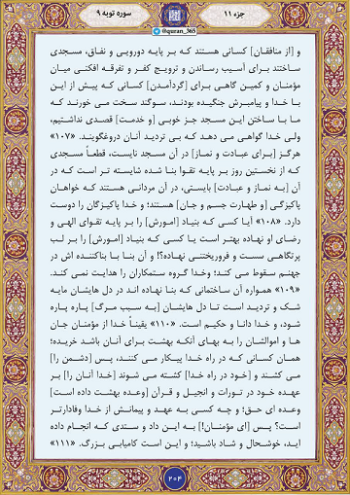 جزء ۱۱
سوره توبه ۹
@quran_365
و [از منافقان] کسانی هستند که بر پایه دورویی و نفاق، مسجدی
ساختند برای آسیب رساندن و ترویج کفر و تفرقه افکنی میان
مؤمنان و کمین گاهی برای [گردآمدن] کسانی که پیش از این
با خدا و پیامبرش جنگیده بودند، سوگند سخت می خورند که
ما با ساختن این مسجد جز خوبی [و خدمت] قصدی نداشتیم،
ولی خدا گواهی می دهد که بی تردید آنان دروغگویند. «۱۰۷»
هرگز [برای عبادت و نماز] در آن مسجد نایست، قطعاً مسجدی
که از نخستین روز بر پایه تقوا بنا شده شایسته تر است که در
آن [به نماز و عبادت] بایستی، در آن مردانی هستند که خواهان
پاکیزگی [و طهارت جسم و جان] هستند؛ و خدا پاکیزگان را دوست
دارد. «۱۰۸» آیا کسی که بنیاد [امورش] را بر پایه تقوای الهی و
رضای او نهاده بهتر است یا کسی که بنیاد [امورش] را بر لب
پرتگاهی سست و فروریختنی نهاده؟! و آن بنا با بناکننده اش در
جهنم سقوط می کند؛ وخدا گروه ستمکاران را هدایت نمی کند.
«۱۰۹» همواره آن ساختمانی که بنا نهاده اند در دل هایشان مایه
شک و تردید است تا دل هایشان [به سبب مرگ] پاره پاره
شود، و خدا دانا و حکیم است. «۱۱۰» یقیناً خدا از مؤمنان جان
ها و اموالشان را به بهای آنکه بهشت برای آنان باشد خریده؛
همان کسانی که در راه خدا پیکار می کنند، پس [دشمن را]
می کشند و [خود در راه خدا] کشته می شوند [خدا آنان را] بر
عهده خود در تورات و انجیل و قرآن [وعده بهشت داده است]
وعده ای حق؛ و چه کسی به عهد و پیمانش از خدا وفادارتر
است؟ پس [ای مؤمنان!] به این داد و ستدی که انجام داده
اید، خوشحال و شاد باشید؛ و این است کامیابی بزرگ. «۱۱۱»
۲۰۴